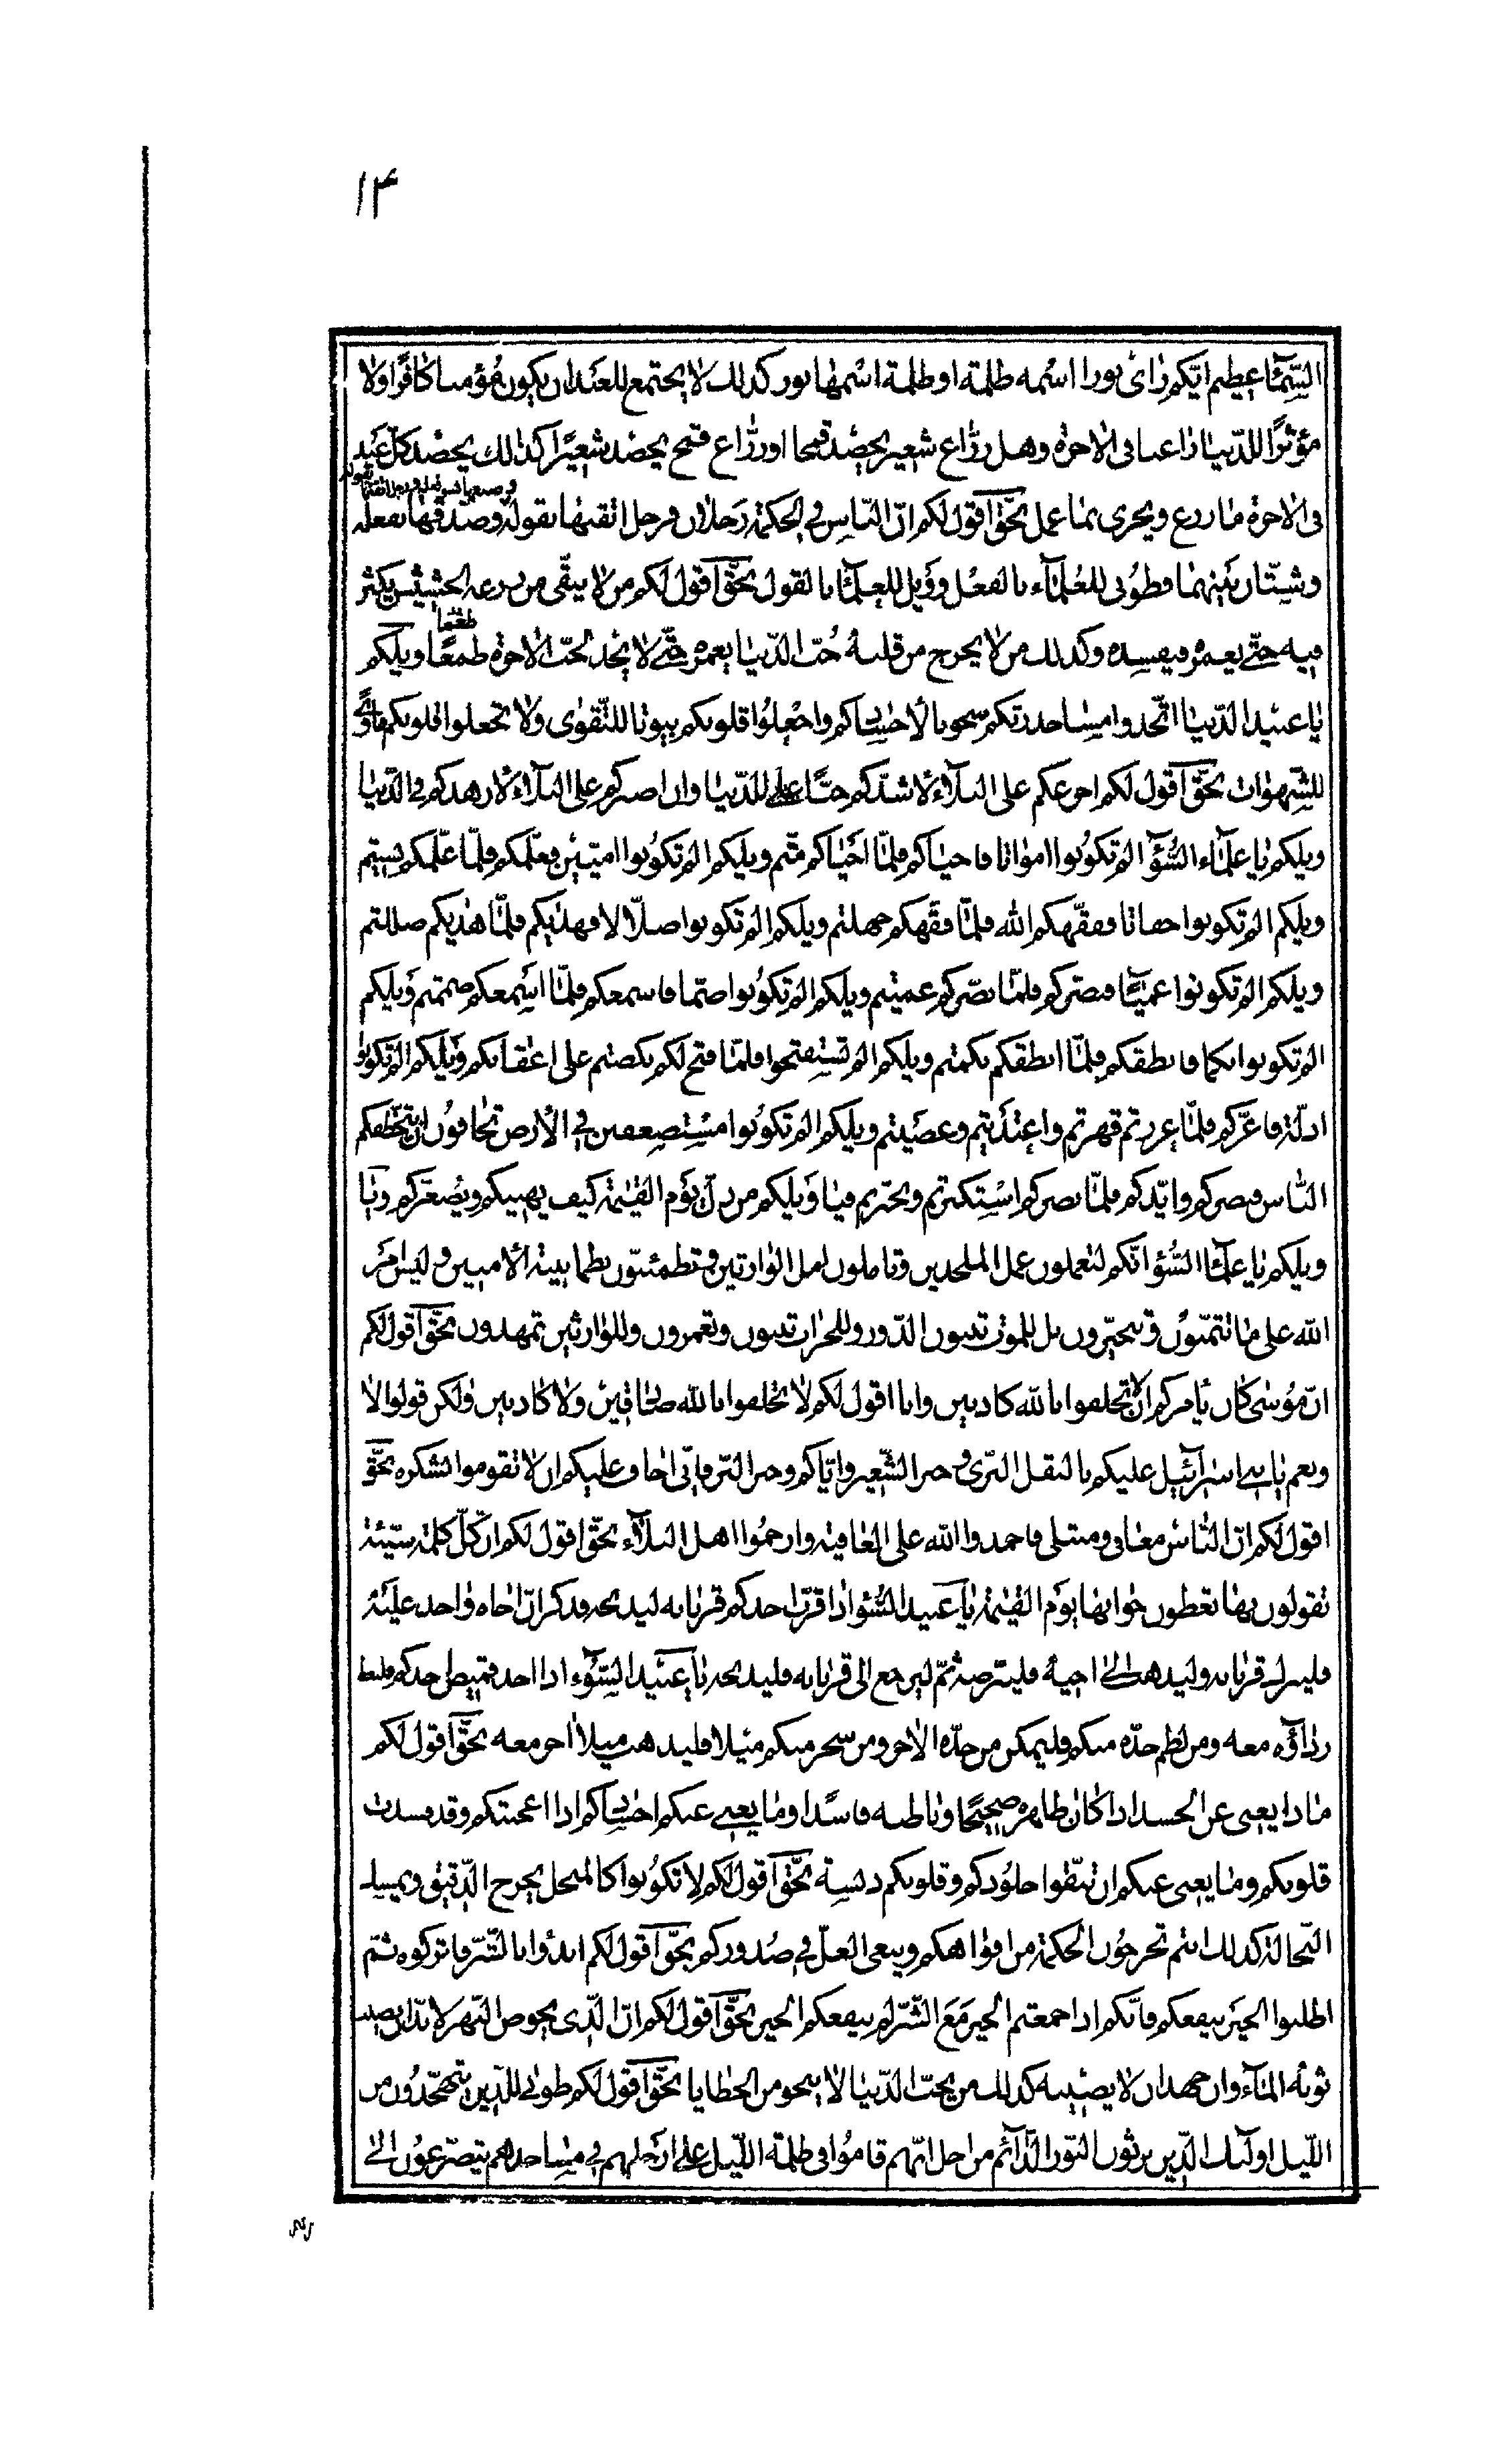 ١٤
السّمآء عظيم ايّكم رأى نورا اسمه ظلمة او ظلمة اسمها نور كذلك لا يجتمع للعبد ان يكون مؤمنا كافرا ولا
مؤثرًا للدّنيا راغبا فى الاخرة وهل زرّاع شعير يحصد قمحا او زرّاع قمح يحصد شعيرًا كذلك يحصد كلّ عبد
فى الاخرة ما زرع ويجزى بما عمل بحقّ اقول لكم انّ النّاس فى الحكمة رجلان فرجل اتقنها بقوله وصدّقها بفعله
وضيعها بسوء فعله ورجل اتقنها بقوله
وشتّان بينهما فطوبى للعلمآء بالفعل وويل للعلمآء بالقول بحقّ اقول لكم من لا ينقّى من زرعه الحشيش يكثر
فيه حتّى يغمره فيفسده وكذلك من لا يخرج من قلبه حبّ الدّنيا يغمره حتّى لا يجد لحبّ الاخرة طعمًا ويلكم
طعما
يا عبيد الدّنيا اتّخذوا مساجد ربّكم سجونا لاجسادكم واجعلوا قلوبكم بيوتا للتّقوى ولا تجعلوا قلوبكم مأوى
للشّهوات بحقّ اقول لكم اجزعكم على البلآء لاشدّكم حبّا للدّنيا وان اصبركم على البلآء لازهدكم فى الدّنيا
ويلكم يا علمآء السّوء الم تكونوا امواتا فاحياكم فلمّا احياكم متّم ويلكم الم تكونوا اميّين فعلّمكم فلمّا علّمكم نسيتم
ويلكم الم تكونوا جفاتا ففقّهكم الله فلمّا فقّهكم جهلتم ويلكم الم تكونوا ضلّالا فهديكم فلمّا هديكم ضللتم
ويلكم الم تكونوا عميًا فبصّركم فلمّا بصّركم عميتم ويلكم الم تكونوا صمّا فاسمعكم فلمّا اسمعكم صممتم ويلكم
الم تكونوا بكما فانطقكم فلمّا انطقكم بكمتم ويلكم الم تستفتحوا فلمّا فتح لكم نكصتم على اعقابكم ويلكم الم تكونوا
اذلّة فاعزّكم فلمّا عززتم قهرتم واعتديتم وعصيتم ويلكم الم تكونوا مستضعفين فى الأرض تخافون ان يتخطّفكم
النّاس فنصركم وايّدكم فلمّا نصركم استكبرتم وتجبّرتم فيا ويلكم من ذلّ يوم القيمة كيف يهينكم ويصغّركم ويا
ويلكم يا علمآء السّوء انّكم لتعملون عمل الملحدين وتاملون امل الوارثين وتطمئنّون بطمانينة الامنين وليس امر
الله على ما تتمنّون وتتخيّرون بل للموت تبنون الدّور وللخراب تبنون وتعمرون وللوارثين تمهدون بحقّ اقول لكم
انّ موسى كان يأمركم ان لا تحلفوا بالله كاذبين وانا اقول لكم لا تحلفوا بالله صادقين ولا كاذبين ولكن قولوا لا
ونعم يا بنى اسرآئيل عليكم بالبقل البرّى وخبز الشّعير وايّاكم وخبز البرّ فانّى اخاف عليكم ان لا تقوموا بشكره بحقّ
اقول لكم انّ النّاس معافى ومبتلى فاحمدوا الله على العافية وارحموا اهل البلآء بحقّ اقول لكم انّ كلّ كلمة سيّئة
تقولون بها تعطون جوابها يوم القيمة يا عبيد السّوء اذا قرّب احدكم قربانه ليذبحه فذكر انّ اخاه واجد عليه
فليترك قربانه وليذهب الى اخيه فليترضه ثمّ ليرجع الى قربانه فليذبحه يا عبيد السّوء اذا اخذ قميص احدكم فليعط
ردآؤه معه ومن لطم خدّه منكم فليمكّن من خدّه الاخر ومن سخّر منكم ميلا فليذهب ميلاً اخر معه بحقّ اقول لكم
ماذا يغنى عن الجسد اذا كان ظاهره صحيحًا وباطنه فاسدًا وما يغنى عنكم اجسادكم اذا اعجبتكم وقد فسدت
قلوبكم وما يغنى عنكم ان تنقّوا جلودكم وقلوبكم دنسة بحقّ اقول لكم لا تكونوا كالمنخل يخرج الدّقيق ويمسك
النّخالة كذلك انتم تخرجون الحكمة من افواهكم ويبقى الغلّ فى صدوركم بحقّ اقول لكم ابدؤا بالشّرّ فاتركوه ثمّ
اطلبوا الخير ينفعكم فانّكم اذا جمعتم الخير مع الشّرّ لم ينفعكم الخير بحقّ اقول لكم انّ الّذى يخوض النّهر لا بدّ ان يصيب
ثوبه المآء وان جهد ان لا يصيبه كذلك من يحبّ الدّنيا لا ينجو من الخطايا بحقّ اقول لكم طوبى للّذين يتهجّدون من
اللّيل اولئك الّذين يرثون النّور الدّآئم من اجل انّهم قاموا فى ظلمة اللّيل على ارجلهم فى مساجدهم يتضرّعون الى